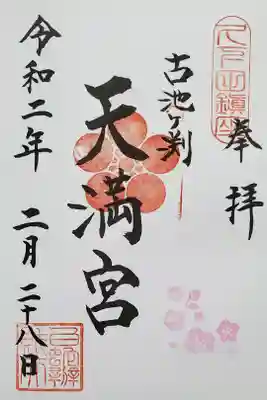 奉拝
古池ヶ渕
天満宮
令和二年 二月 二十八日